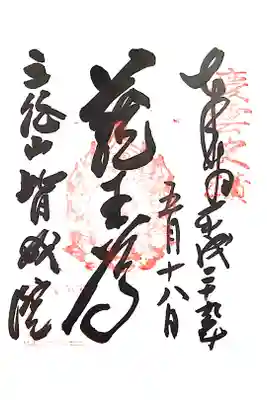 奉拝 平成二十九年
五月十八日
蔵王尊
三徳山皆成院